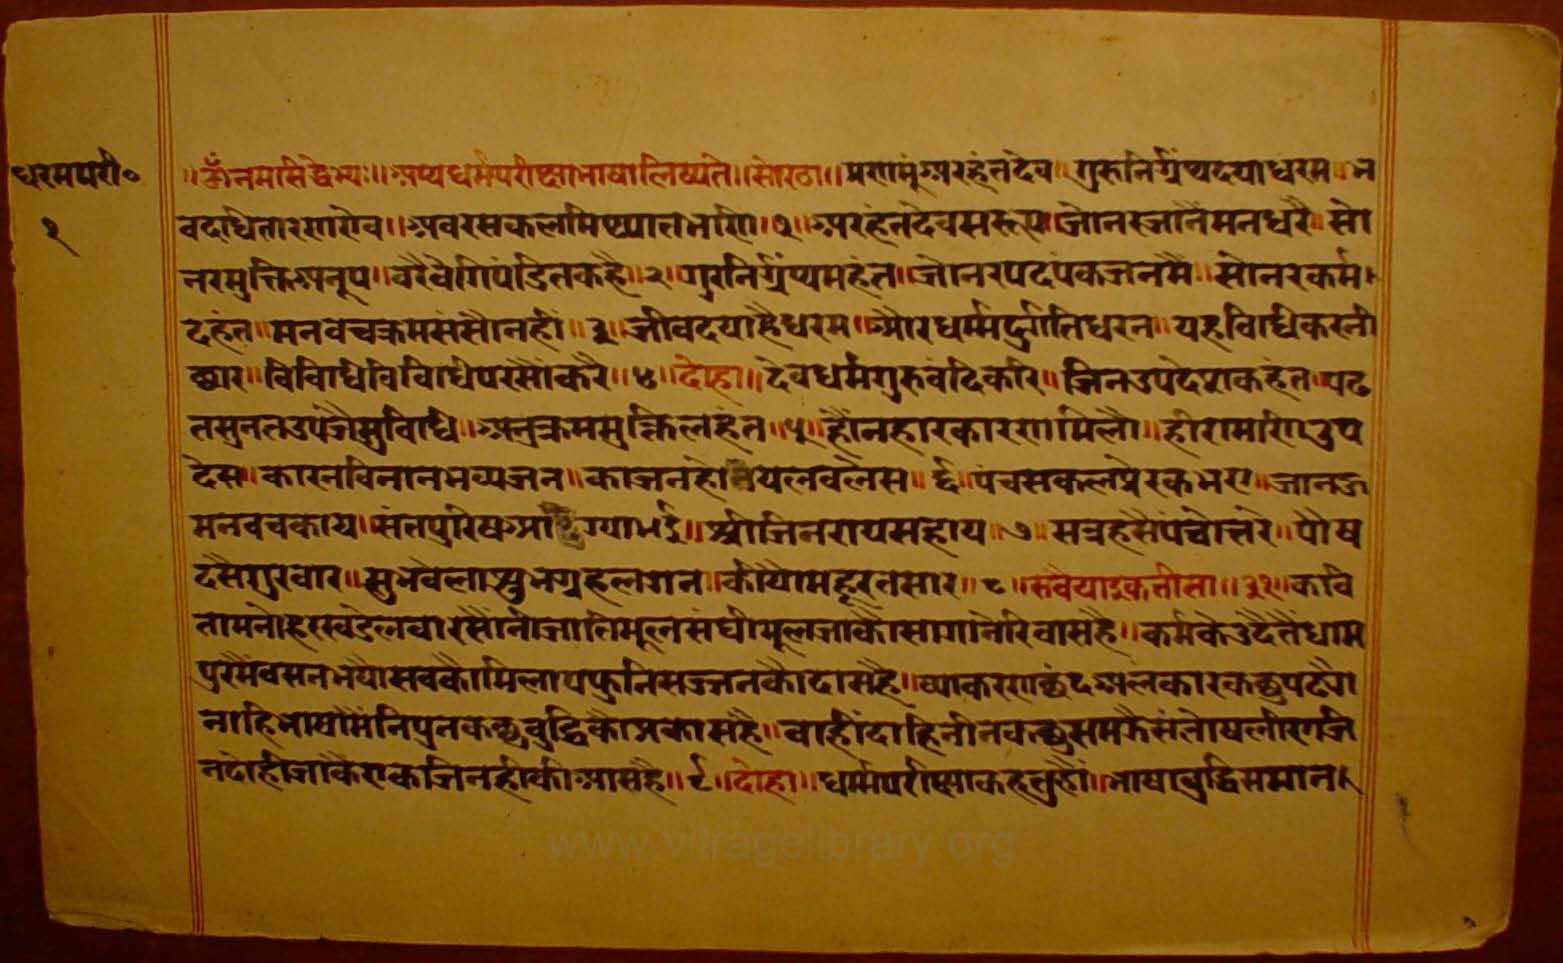 धरमपरी॰
१
॥ॐनमःसिद्धेभ्यः॥अथधर्मपरीक्षाभाषालिष्यते॥सोरठा॥प्रणमूंअरहंतदेव॥गुरुनिर्ग्रंथदयाधरम॥भ
वदधितारणएेव॥अवरसकलमिथ्यातभणि॥१॥अरहंतदेवसरूप॥जोनरजांनैमनधरै॥सो
नरमुक्तिअनूप॥वरैवेगिपंडितकहै॥२॥गुरनिर्ग्रंथमहंत॥जोनरपदपंकजनमै॥सोनरकर्म
दहंत॥मनवचक्रमसंसौनहीं॥३॥जीवदयाहैधरम॥औरधर्म्मदुर्गतिधरन॥यहविधिकरनी
छार॥विविधिविविधिपरसौंकरै॥४॥दोहा॥देवधर्मगुरुवंदिकरि॥जिनउपदेशकहंत॥पढ
तसुनतउपजैसुविधि॥अनुक्रमसुक्तिलहंत॥५॥हौंनहारकारणमिलै॥हीरामणिउप
देस॥कारनविनानभव्यजन॥काजनहो यलवलेस॥६॥पंचसकलप्रेरकभए॥जानज
मनवचकाय॥संतपुरिषआ ग्याभई॥श्रीजिनरायसहाय॥७॥सत्रहसैपंचोत्तरे॥पौष
दसैगुरवार॥सुभवेलासुभग्रहलगन॥कीयौमहूरतसार॥८॥सवैयाइकतीसा॥३१॥कवि
तामनोहरखंडेलवारसौंनीजातिमूलसंघीमूलजाकौसागानेरिवासहै॥कर्मकेउदैतैंधाम
पुरमैंवसनभयौसबकौमिलापपुनिसज्जनकौदासहै॥व्याकरणछंदअलंकारकछुपढ्यौ
नाहिभाषामैंनिपुनकछुबुद्धिकौप्रकासहै॥बाहींदाहिनीनकछुसमझैसंतोषलीएजि
नदोहीजाकैएकजिनहीकीआसहै॥९॥दोहा॥धर्मपरीक्षाकहतुहौं॥भाषाबुद्धिसमान॥
www.vitragelibrary.org